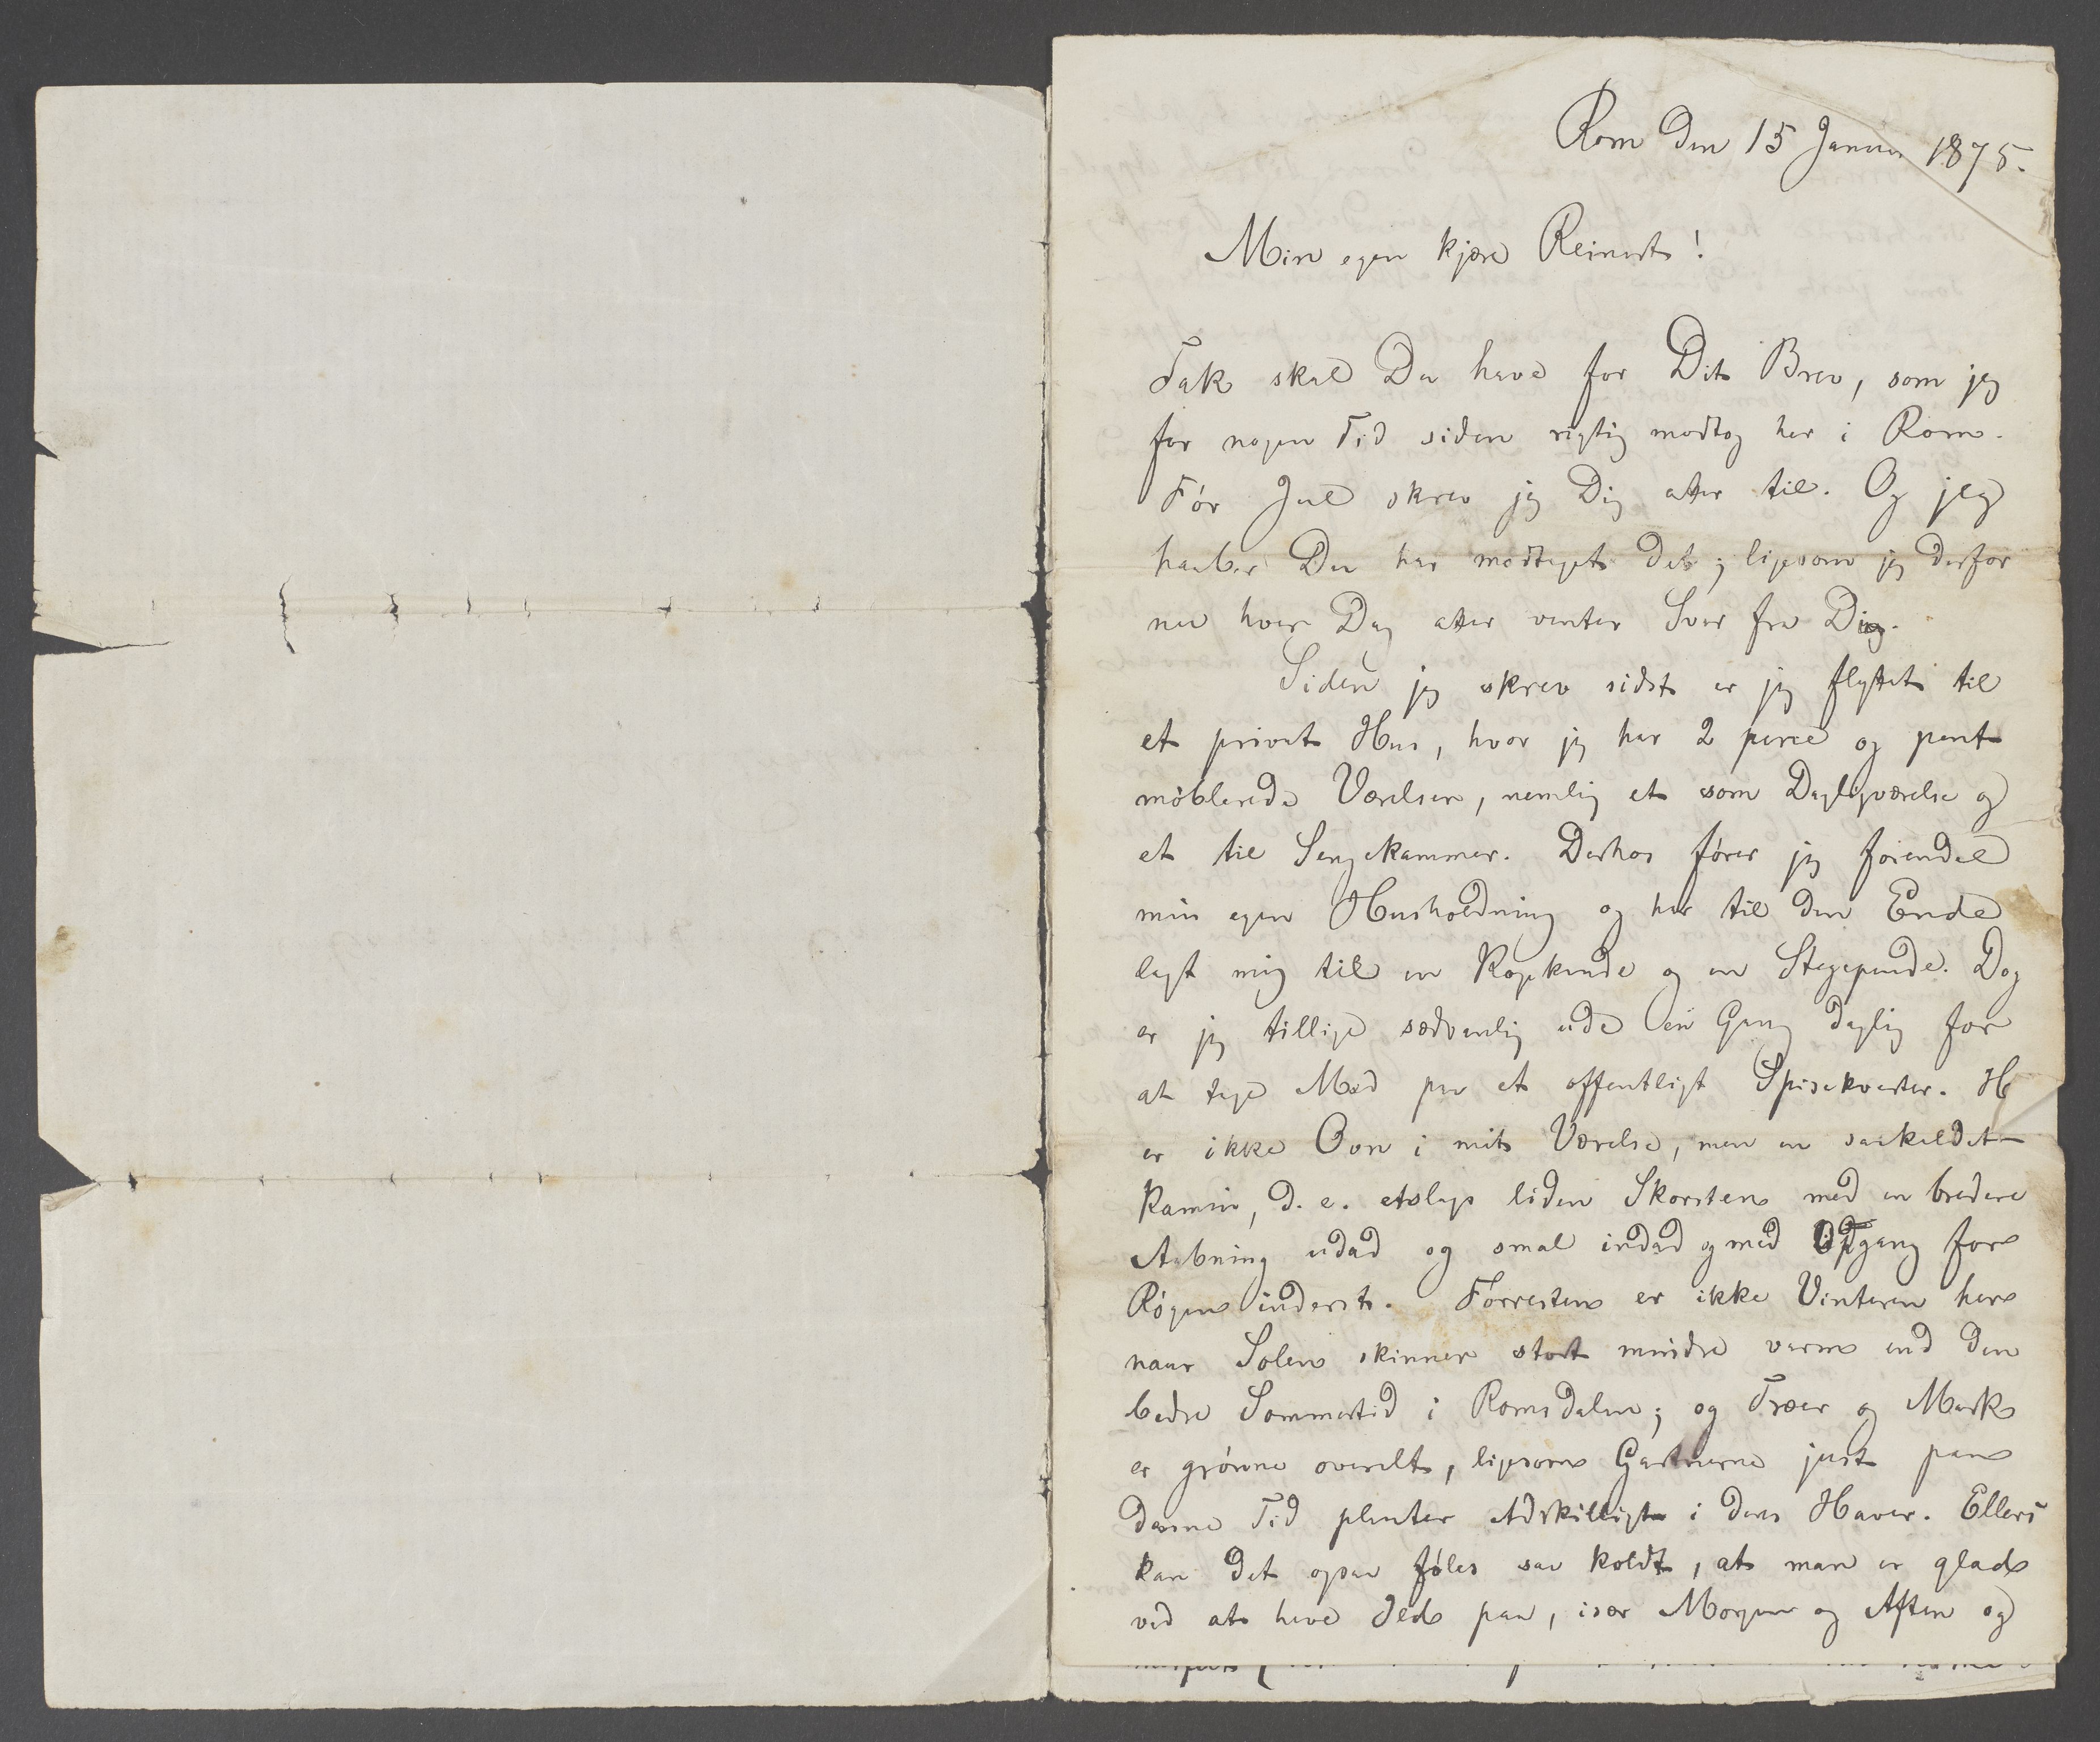 Rom den 15 Januar 1875.
Min egen kjære Reinert!
Tak skal Du have for Dit Brev, som jeg
for nogen Tid siden rigtig modtog her i Rom.
Før Jul skrev jeg Dig atter til. Og jeg
haaber Du har modtaget det; ligesom jeg derfor
nu hver Dag atter venter Svar fra Dig.
Siden jeg skrev sidst er jeg flyttet til
et privat Hus, hvor jeg har 2 pene og pent
møblerede Værelser, nemlig et som Dagligværelse og
et til Sengekammer. Derhos fører jeg forendel
min egen Husholdning og har til den Ende
lagt mig til en Kogekande og en Stegepande. Dog
er jeg tillige sædvanlig ude én Gang daglig for
at tage Mad paa et offentligt Spisekvarter. H
er ikke Ovn i mit Værelse, men en saakaldet
Kamin, d. e. etslags liden Skorsten med en bredere
Aabning udad og smal indad og med Opgang for
Røgen inderst. Forresten er ikke Vinteren her
naar Solen skinner stort mindre varm end den
bedre Sommertid i Romsdalen; og Træer og Mark
er grønne overalt, ligesom Gartnerne just paa
denne Tid planter Adskilligt i deres Haver. Ellers
kan det ogsaa føles saa koldt, at man er glad
ved at have Ild paa, især Morgen og Aften og